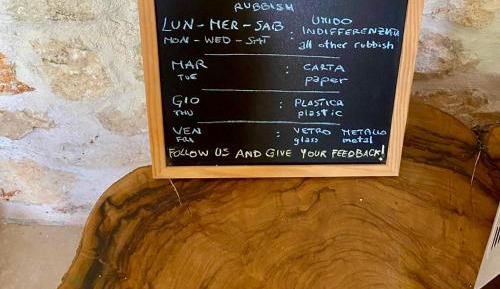 RUBBISH
LUN - MER - SAB : UMIDO
INDIFFERENZIATA
MON - WED - SAT all other rubbish
MAR : CARTA
TUE paper
GIO : PLASTICA
THU plastic
VEN : VETRO METALLO
FRI glass metal
FOLLOW US AND GIVE YOUR FEEDBACK!